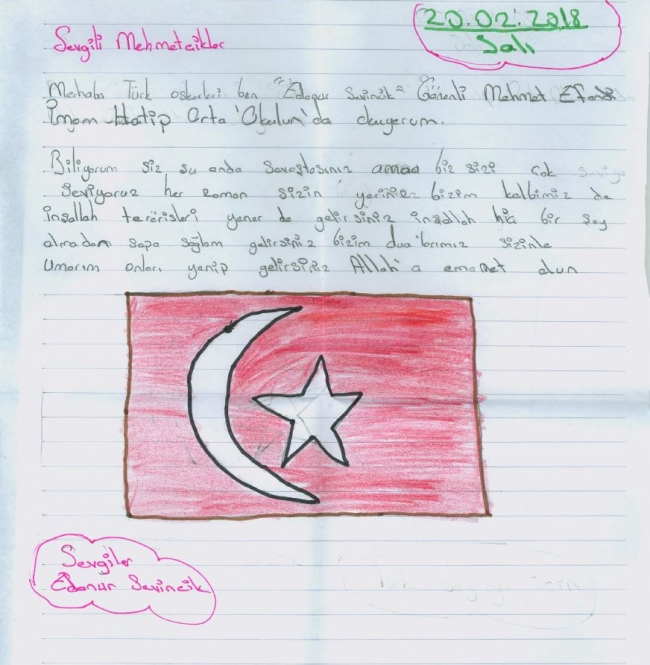 20.02.2018
Salı
Sevgili Mehmetcikler
Merhaba Türk askerleri ben "Edanur Sevincik" Gönenli Mehmet Efendi
İmam Hatip Orta 'Okulun'da okuyorum.
Biliyorum siz şu anda savaştasınız amaa biz sizi çok
seviyoruz her zaman sizin yeriniz bizim kalbimiz de
inşallah terörisleri yener de gelirsiniz inşallah hiç bir şey
olmadan sapa sağlam gelirsiniz bizim dua'larımız sizinle
Umarım onları yenip gelirsiniz Allah'a emanet olun
Sevgiler
Edanur Sevincik